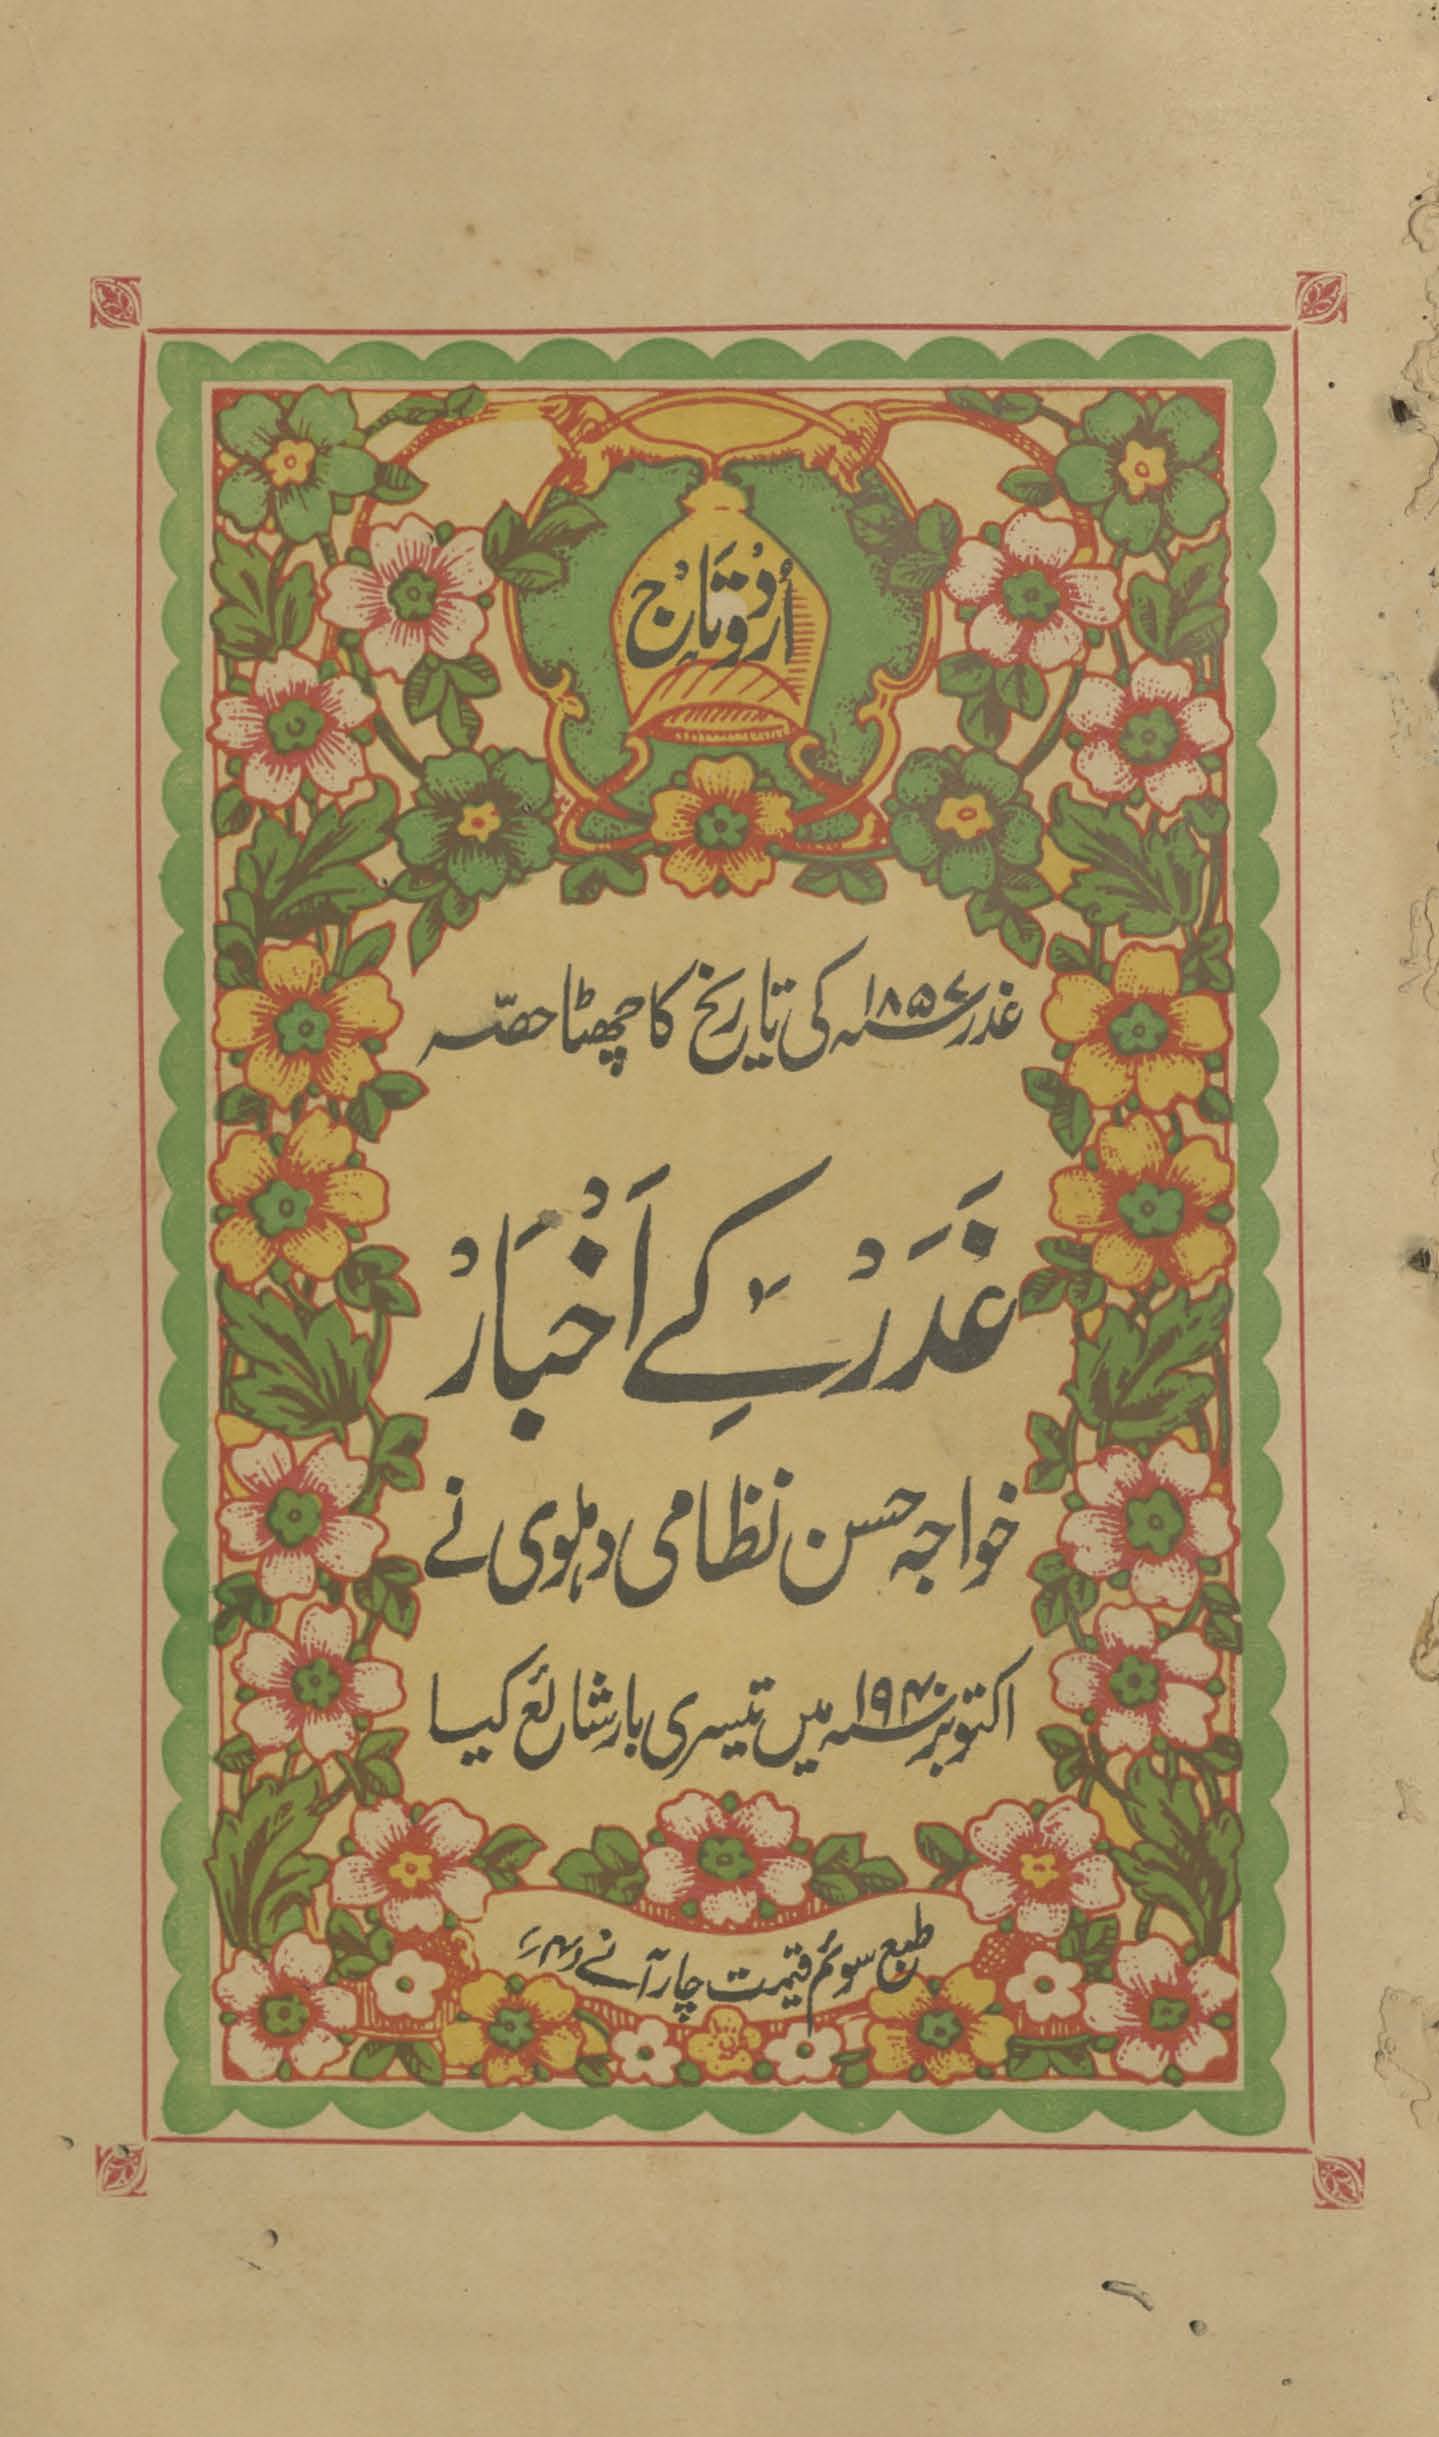 اُردُو تَاج
غدر ۱۸۵۷ء کی تاریخ کا چھٹا حصّہ
غَدَرْ کے اَخْبَارْ
خواجہ حسن نظامی دہلوی نے
اکتوبر ۱۹۴۰ء میں تیسری بار شائع کیا
طبع سوئم قیمت چار آنے (۴؍)